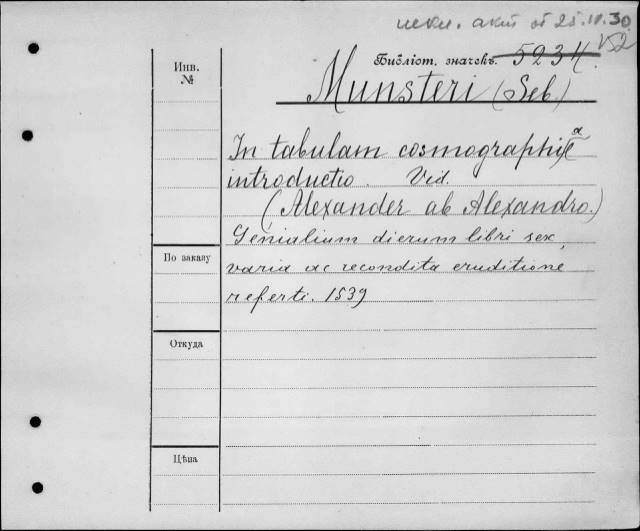 искл. акт от 25.IV.30
Инв.
№
Библіот. значекъ. 5234.
Munsteri (Seb.)
In tabulam cosmographiæ
introductio. Vid.
(Alexander ab Alexandro.)
Genialium dierum libri sex,
По заказу
varia ac recondita eruditione
referti. 1539
Откуда
Цѣна